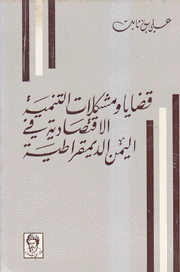 علي حسن ثابت
قضايا ومشكلات التنمية
الاقتصادية في
اليمن الديمقراطية